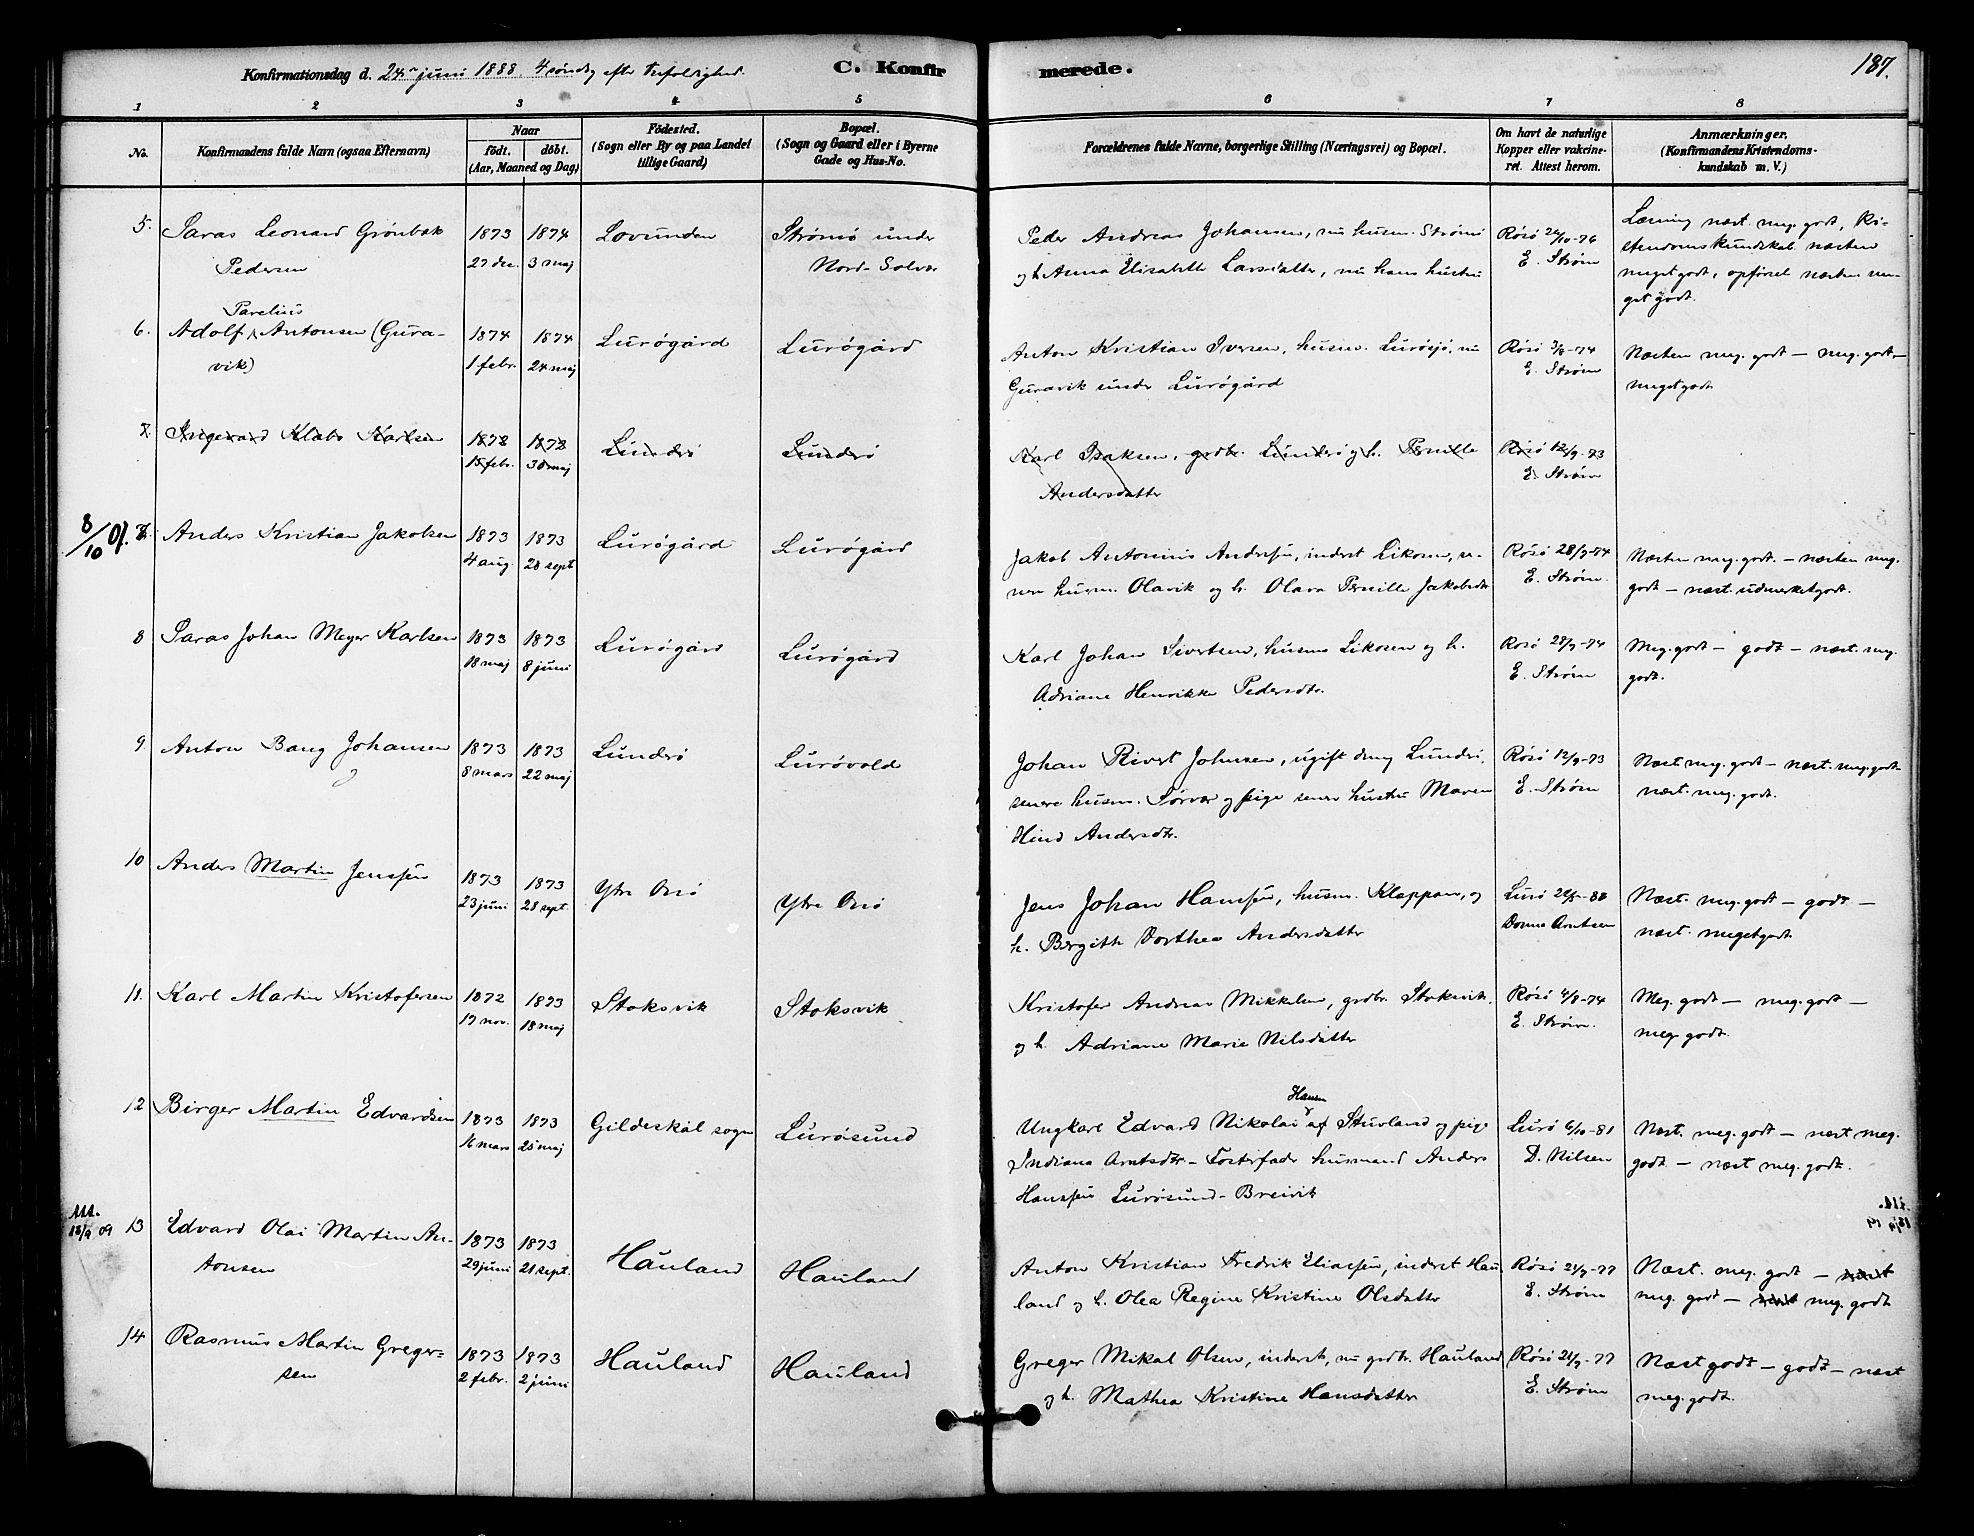 Konfirmationsdag d. 24de juni 1888. 4 søndag efter trefoldighed. C. Konfirmerede. 187.
1 2 3 4 5 6 7 8
No. Konfirmandens fulde Navn (ogsaa Efternavn) Naar født. døbt. (Aar, Maaned og Dag) Födested. (Sogn eller By og paa Landet tillige Gaard) Bopæl. (Sogn og Gaard eller i Byerne Gade og Hus-No. Forældrenes fulde Navne, borgerlige Stilling (Næringsvei) og Bopæl. Om havt de naturlige Kopper eller vakcineret. Attest herom. Anmærkninger. (Konfirmandens Kristendomskundskab m. V.)
5. Paras Leonard Grönbæk 1873 1874 Lovunden Strömö under Peder Andreas Johansen, nu husm. Strömö Rösö 24/10-76 Læsning næst. meg. godt, Kri-
Pedersen 27 dec. 3 maj Nord-Solvær og h. Anna Elisabeth Larsdatter, nu hans hustru E. Ström stendomskundskab næsten
meget godt, opförsel næsten me-
get godt.
Parelius
6. Adolf Antonsen (Gura- 1874 1874 Lurögård Lurögård Anton Kristian Iversen, husm. Lurösjö, nu Rösö 3/8-74 Næsten meg. godt — meg. godt —
vik) 1 febr. 24 maj Guravik under Lurögård E. Ström meget godt
7. Ingevard Klabo Karlsen 1873 1873 Lunderö Lunderö Karl Isaksen, grdbr. Lunderö og h. Pernille Rösö 12/9-73
15 febr. 30 maj Andersdatter E. Ström
8/10 01. 7. Anders Kristian Jakobsen 1873 1873 Lurögård Lurögård Jakob Antonius Andersen, inderst Likosen, se- Rösö 28/9-74 Næsten meg. godt. — næsten meg.
4 aug. 28 sept nere husm. Olavik og h. Olava Pernille Jakobsdtr E. Ström. godt — næst. udmerket godt.
8 Paras Johan Meyer Karlsen 1873 1873 Lurögård Lurögård Karl Johan Sivertsen, husm. Likosen og h. Rösö 28/9-74 Meg. godt — godt — næst. meg.
18 maj 8 juni Adriane Henrikke Pedersdtr. E. Ström godt.
9. Anton Bang Johansen 1873 1873 Lunderö Lurövold Johan Rivert Johnsen, ugift dreng Lunderö, Rösö 12/9-73 Næst meg. godt — næst. meg. godt
8 mars 22 maj senere husm. Sörvær og pige senere hustru Maren E. Ström næst. meg. godt.
Hind Andersdtr.
10 Anders Martin Jenssen 1873 1873 Ytre Onö Ytre Onö Jens Johan Hanssen, husm. Kleppan, og Lurö Næst. meg. godt — godt —
23 juni 28 sept. h. Birgith Dorthea Andersdatter Arntsen næst. meget godt.
11. Karl Martin Kristofersen 1872 1873 Stoksvik Stoksvik Kristofer Andreas Mikkelsen, grdbr. Stoksvik. Rösö 4/8-74 Meg. godt — meg. godt —
17 nov. 18 maj og h. Adriane Marie Nilsdatter E. Ström. meg. godt.
Hansen
12 Birger Martin Edvardsen 1873 1873 Gildeskål sogn Lurösund Ungkarl Edvard Nikolai af Stuvland og pige Lurö 6/10-81 Næst. meg. godt — næst meg.
16 mars 25 maj Indiana Arntsdtr — Fosterfader husmand Anders D. Nilsen godt. — næst meg. godt.
Hanssen Lurösund-Breivik
Att. 13/9 09 13 Edvard Olai Martin An- 1873 1873 Hauland Hauland Anton Kristian Fredrik Eliassen, inderst Hau Rösö 21/9-77 Næst. meg. godt — næst
tonsen 29 juni 21 sept. land og h. Olea Regine Kristine Olsdatter E. Ström meg. godt — næst meg. godt
14 Rasmus Martin Greger- 1873 1873 Hauland Hauland Greger Mikal Olsen, inderst, nu grdbr. Hauland Rösö 21/9-77 Næst godt — godt — næst
sen 2 febr. 2 juni og h. Mathea Kristine Hansdatter E. Ström meg. godt.